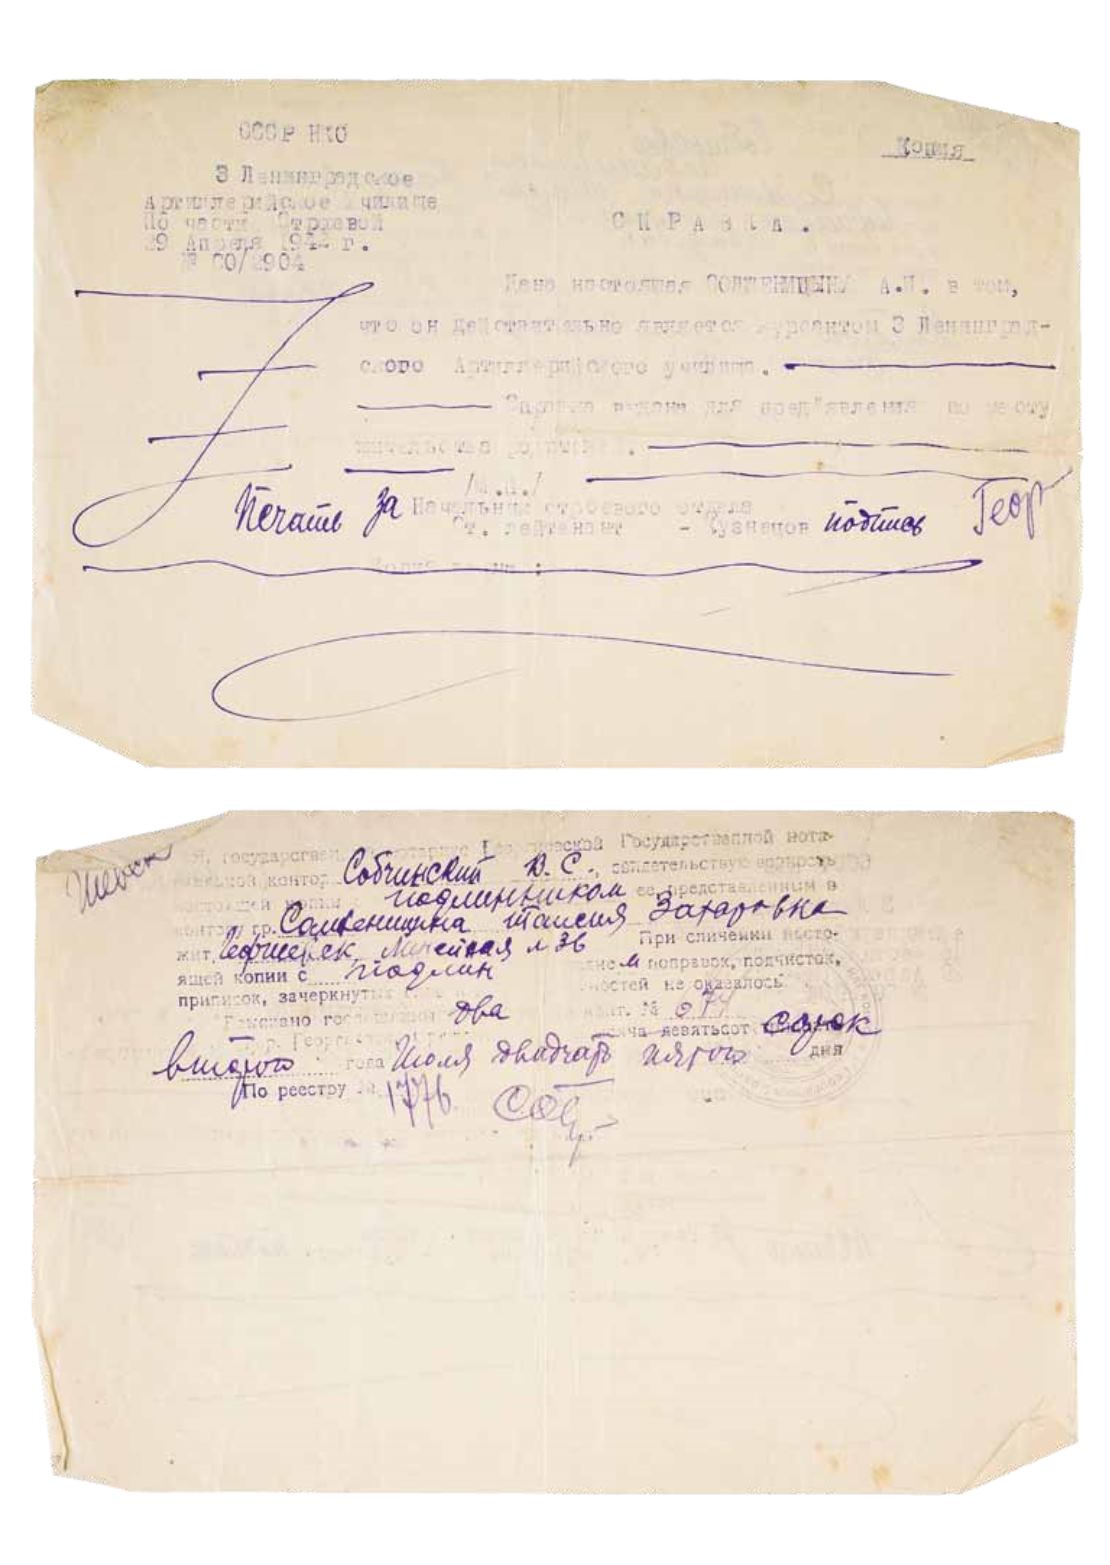 СССР НКО
Копия
3 Ленинградское
Артиллерийское Училище
По части Строевой
29 Апреля 1942 г.
№ 60/2904
СПРАВКА.
Дана настоящая СОЛЖЕНИЦЫНУ А.И. в том,
что он действительно является курсантом 3 Ленинград-
ского Артиллерийского училища.
Справка выдана для пред"явления по месту
жительства родителей.
/М.П./
Печать за Начальник строевого отдела
Ст. лейтенант - Кузнецов подпись
Копия верна:
Я, государствен нотариус Георгиевской Государственной нота-
контор Собчинский В.С., свидетельствую верность
настоящей копии с подлинником ее представленным в
контору гр. Солженицина Таисия Захаровна
жит. 36 При сличении насто-
ящей копии с подлин м поправок, подчисток,
приписок, зачеркнутых ностей не оказалось.
Взыскано гос два квит. № 074
гор. Георг тысяча девятьсот сорок
второго года Июля двадчать пятого дня
По реестру № 1776